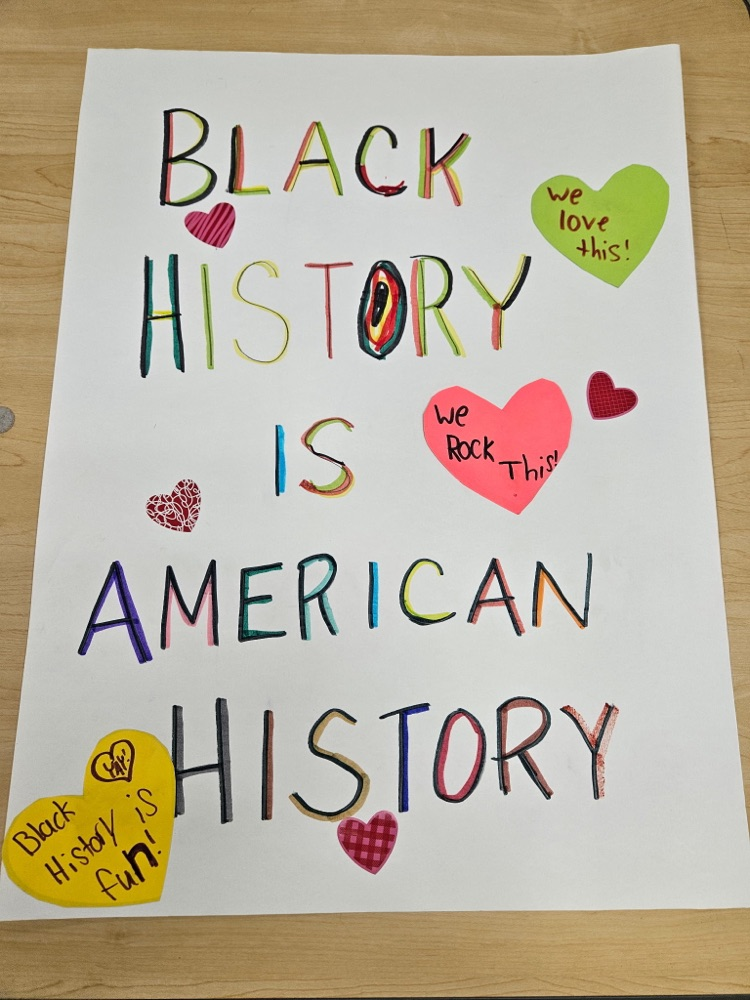 BLACK
We
love
this!
HISTORY
We
ROCK
This!
IS
AMERICAN
HISTORY
YAY!
Black
History is
fun!